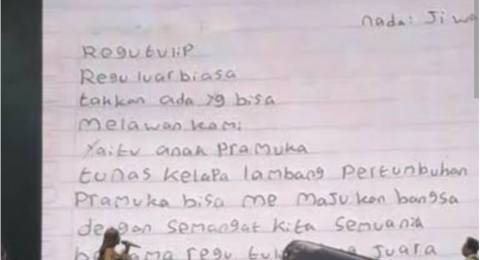 nada: Jiwa
Regu tulip
Regu luar biasa
takkan ada yg bisa
Melawan kami
Yaitu anak Pramuka
tunas kelapa lambang Pertumbuhan
Pramuka bisa me majukan bangsa
dengan semangat kita semuania
regu juara